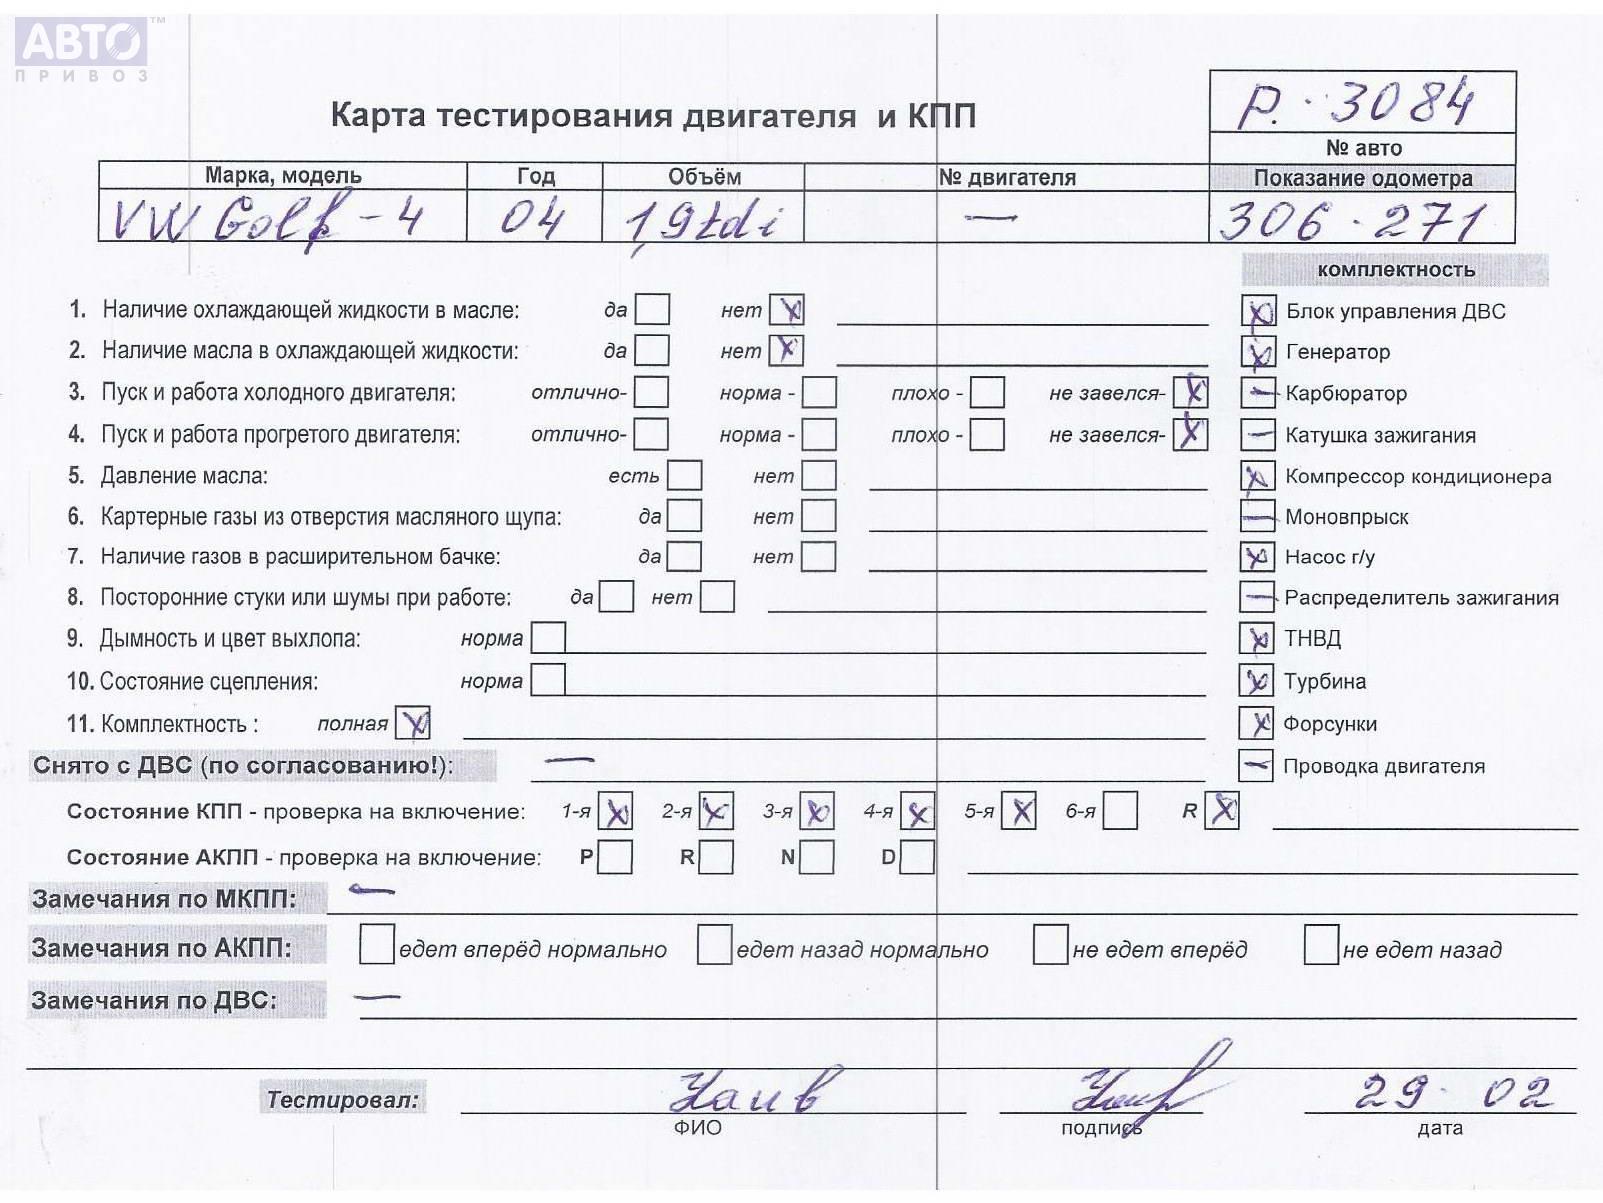 АВТО™
ПРИВОЗ
Р. · 3084
Карта тестирования двигателя и КПП
№ авто
Марка, модель Год Объём № двигателя Показание одометра
VW Golf - 4 04 1,9tdi — 306 · 271
комплектность
1. Наличие охлаждающей жидкости в масле: да нет x x Блок управления ДВС
2. Наличие масла в охлаждающей жидкости: да нет x x Генератор
3. Пуск и работа холодного двигателя: отлично- норма - плохо - не завелся- x — Карбюратор
4. Пуск и работа прогретого двигателя: отлично- норма - плохо - не завелся- x — Катушка зажигания
5. Давление масла: есть нет x Компрессор кондиционера
6. Картерные газы из отверстия масляного щупа: да нет — Моновпрыск
7. Наличие газов в расширительном бачке: да нет x Насос г/у
8. Посторонние стуки или шумы при работе: да нет — Распределитель зажигания
9. Дымность и цвет выхлопа: норма x ТНВД
10. Состояние сцепления: норма x Турбина
11. Комплектность : полная x x Форсунки
Снято с ДВС (по согласованию!): — — Проводка двигателя
Состояние КПП - проверка на включение: 1-я x 2-я x 3-я x 4-я x 5-я x 6-я R x
Состояние АКПП - проверка на включение: P R N D
Замечания по МКПП: —
Замечания по АКПП: едет вперёд нормально едет назад нормально не едет вперёд не едет назад
Замечания по ДВС: —
Тестировал: 29 · 02
ФИО подпись дата